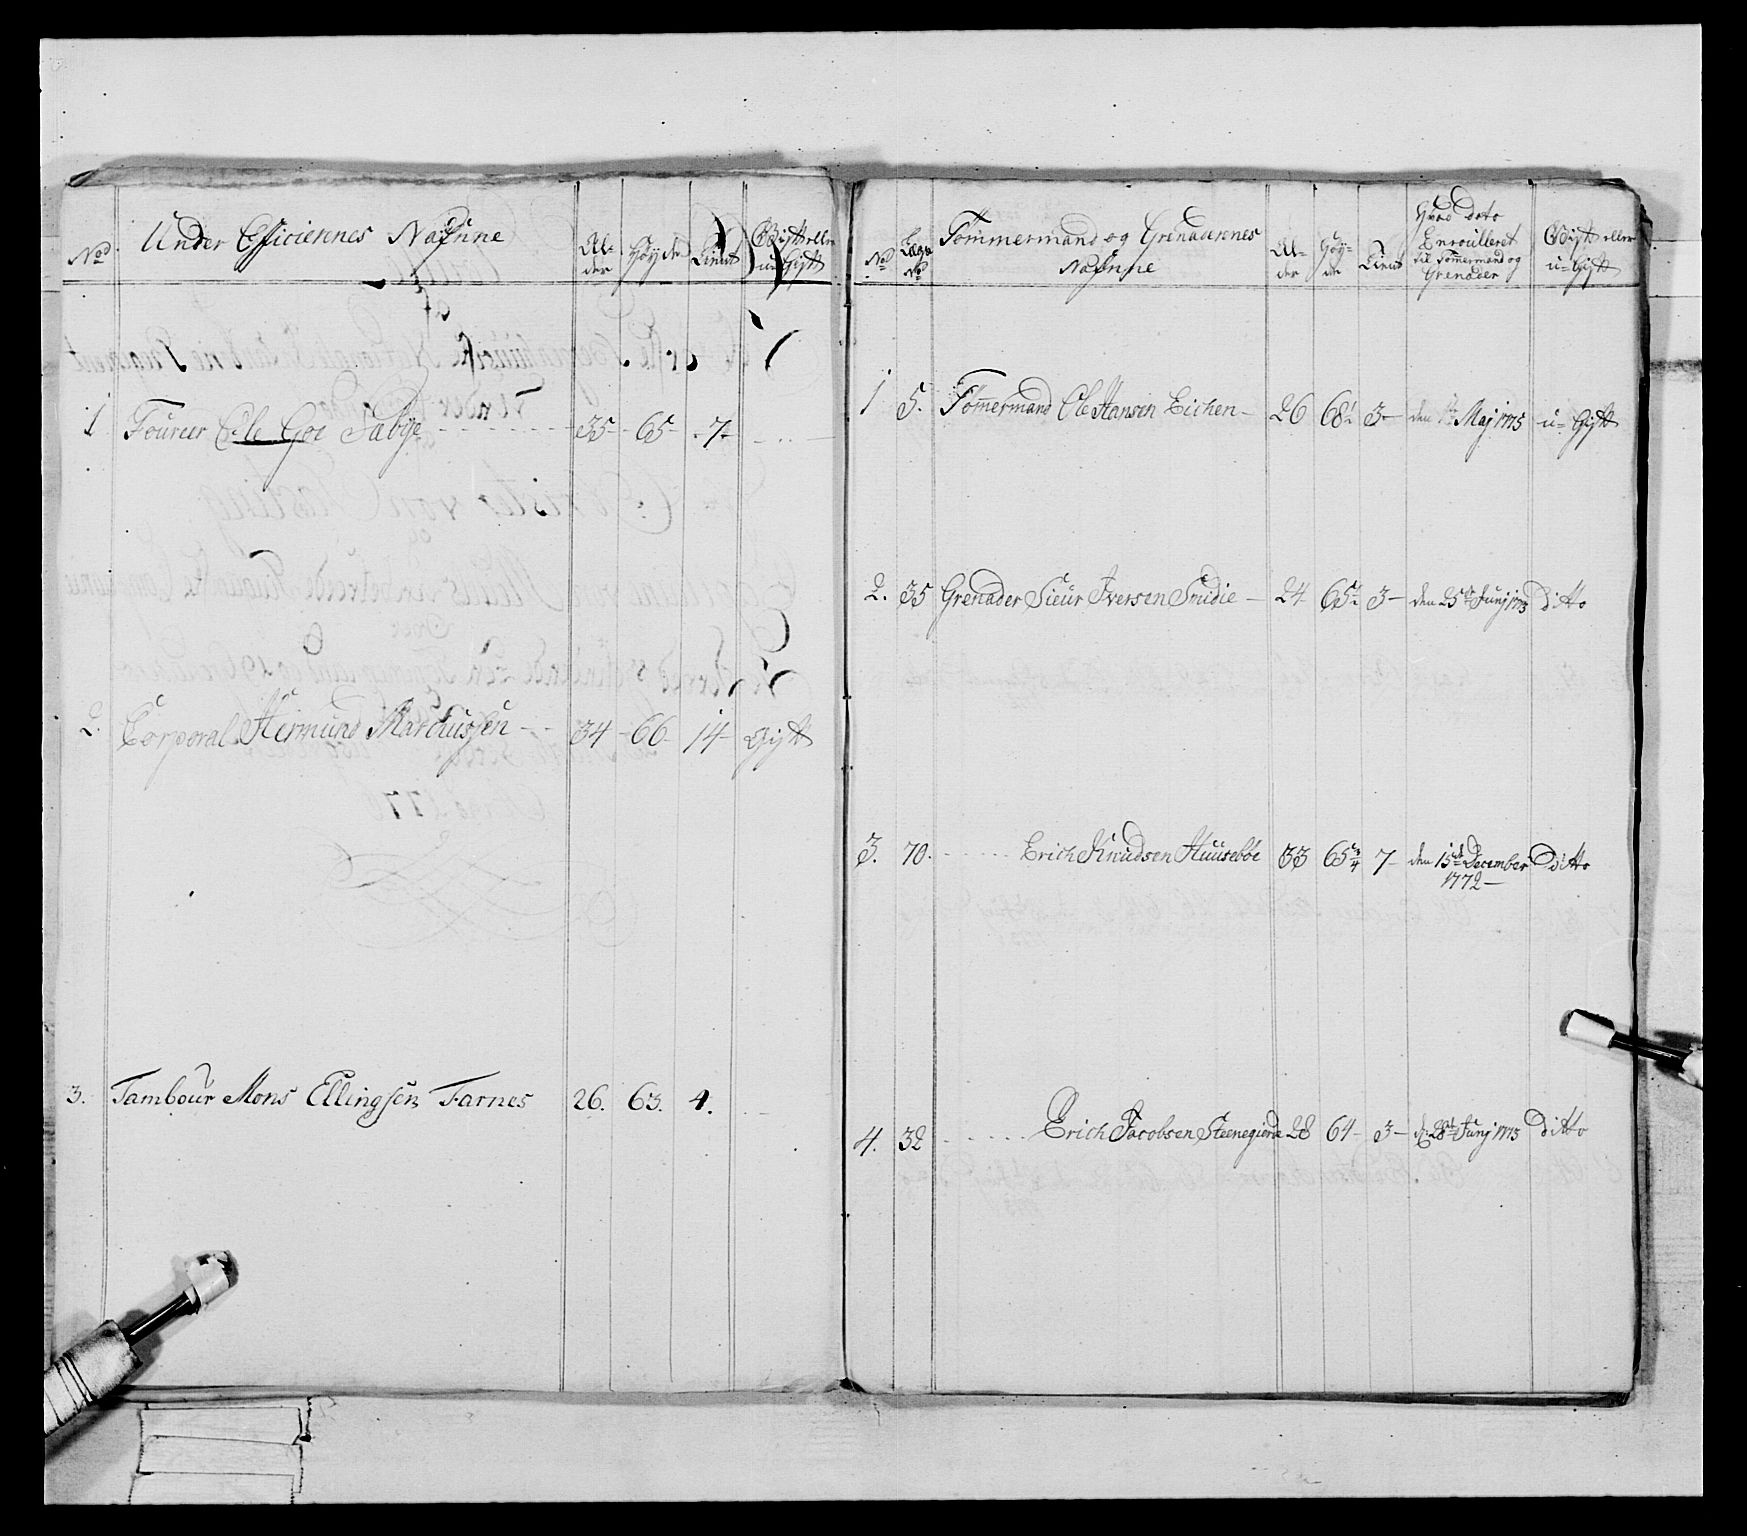 No
Under Officiennes Nafnne
Al-
der
Höyde
Tient
Gift eller
u-Gift
1 Foureer Ole Goe Sæbye - 35 - 65 - 7 -
2. Corporal Hermund Marcussen - 34 - 66 - 14 - Gift
3. Tambour Mons Ellingsen Farnes 26. 63. 4.
No
Lægs
No
Tömmermand og Grenaderenes
Nafnne
Al-
der
Höy-
de
Tient
Hvad dato
Enroulleret
til Tömmermand og
Grenader
Gift eller
u-Gift
1 5. Tömmermand Ole Hansen Eichen - 26 68½ 3 - den Maj 1775 u-Gift
2. 35 Grenader Siur Iversen Smidie - 24 65½ 3 - den 25de Junj 1773 ditto
3. 70. - Erich Knudsen Huuseböe 33 65¾ 7 - den 15de December Ditto
1772 -
4. 32 - Erich Jacobsen Steenegierde 28 64 - 3 - d: 28de Junj 1773 ditto